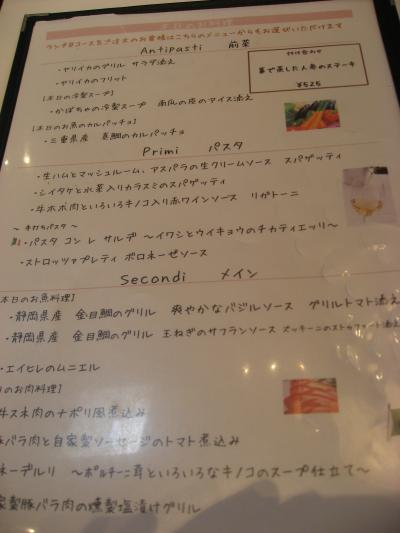 本日のお料理
ランチBコースをご注文のお客様はこちらのメニューからもお選びいただけます
Antipasti 前菜
・ヤリイカのグリル サラダ添え
・ヤリイカのフリット
【本日の冷製スープ】
・かぼちゃの冷製スープ
【本日のお魚のカルパッチョ】
・三重県産 真鯛のカルパッチョ
付け合わせ
¥525
Primi パスタ
・生ハムとマッシュルーム、アスパラの生クリームソース スパゲッティ
・シイタケと水菜入りカラスミのスパゲッティ
・牛ホホ肉といろいろキノコ入り赤ワインソース リガトーニ
～ 手打ちパスタ ～
・パスタ コン レ サルデ ～イワシとウイキョウのチカティエッリ～
・ストロッツァプレティ ボロネーゼソース
Secondi メイン
本日のお魚料理】
・静岡県産 金目鯛のグリル 爽やかなバジルソース グリルトマト添え
・静岡県産 金目鯛のグリル 玉ねぎのサフランソース ズッキーニの
・エイヒレのムニエル
のお肉料理】
牛スネ肉のナポリ風煮込み
豚バラ肉と自家製ソーセージのトマト煮込み
ネーデルリ ～ポルチーニ茸といろいろなキノコのスープ仕立て～
家製豚バラ肉の燻製塩漬けグリル